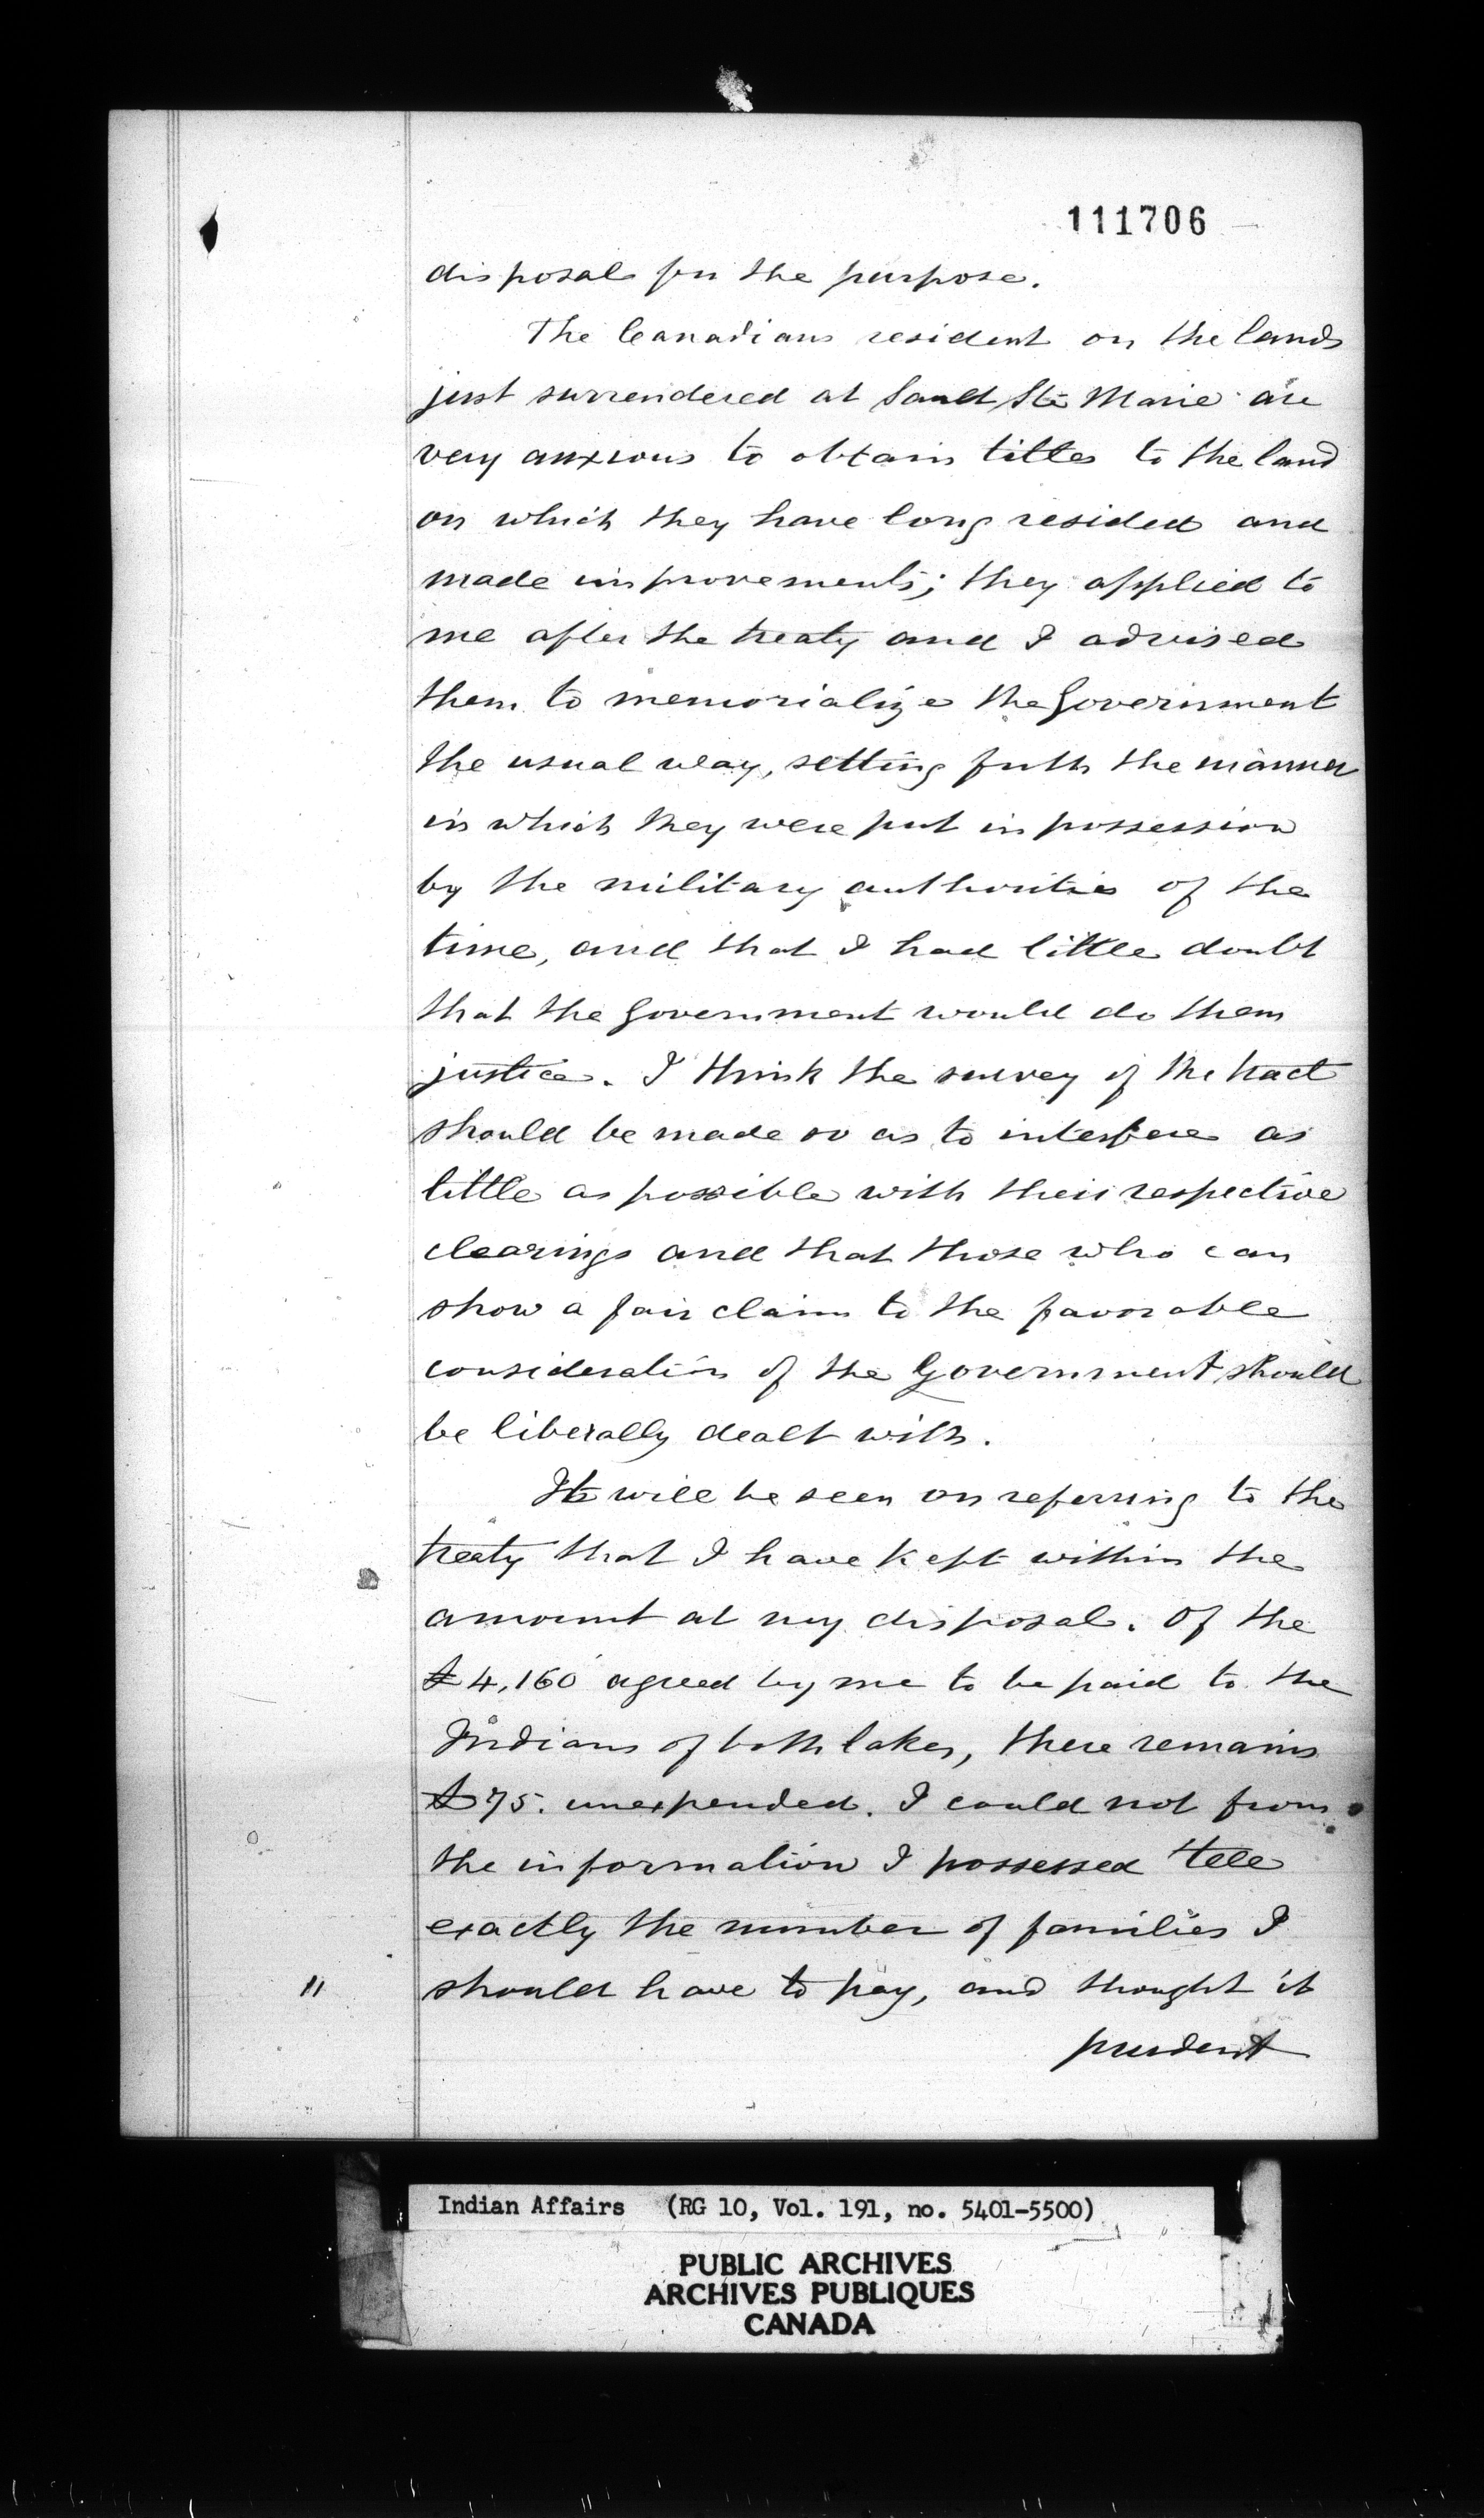 111706
disposal for the purpose.
The Canadians resident on the lands
just surrendered at Sault Ste Marie are
very anxious to obtain titles to the land
on which they have long resided and
made improvements; they applied to
me after the treaty and I advised
them to memorialize the Government
the usual way, setting forth the manner
in which they were put in possession
by the military authorities of the
time, and that I had little doubt
that the Government would do them
justice. I think the survey of the tract
should be made so as to interfere as
little as possible with their respective
clearings and that those who can
show a fair claim to the favorable
consideration of the Government should
be liberally dealt with.
It will be seen on referring to the
treaty that I have kept within the
amount at my disposal. Of the
£4,160 agreed by me to be paid to the
Indians of both lakes, there remains
£75. unexpended. I could not from
the information I possessed tell
exactly the number of families I
" should have to pay, and thought it
prudent
Indian Affairs (RG 10, Vol. 191, no. 5401-5500)
PUBLIC ARCHIVES
ARCHIVES PUBLIQUES
CANADA